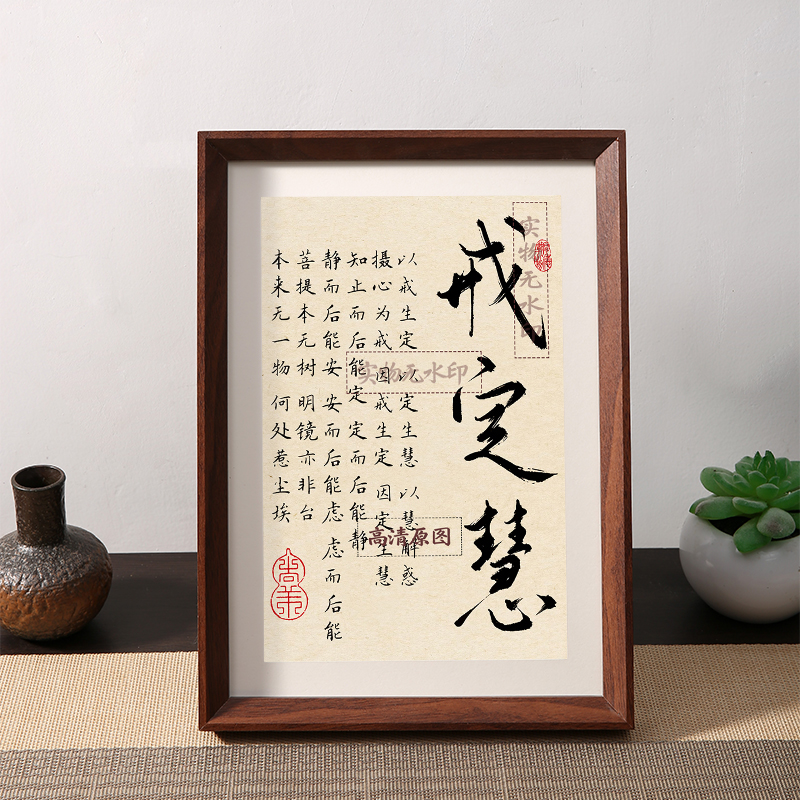 戒定慧
以戒生定 以定生慧 以慧解惑
摄心为戒 因戒生定 因定生慧
知止而后能定 定而后能静
静而后能安 安而后能虑 虑而后能
菩提本无树 明镜亦非台
本来无一物 何处惹尘埃
实物无水印
实物无水印
高清原图